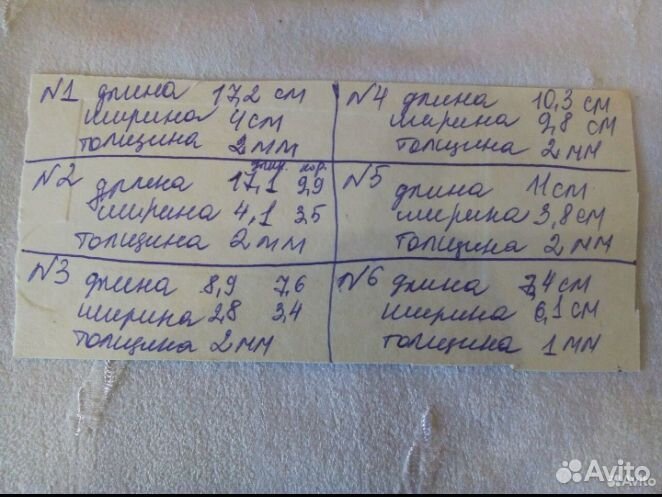 N1 длина 17,2 см
ширина 4 см
толщина 2 мм
N2 длин. кор.
длина 17,1 9,9
ширина 4,1 3,5
толщина 2 мм
N3 длина 8,9 7,6
ширина 2,8 3,4
толщина 2 мм
N4 длина 10,3 см
ширина 9,8 см
толщина 2 мм
N5 длина 11 см
ширина 3,8 см
толщина 2 мм
N6 длина 7,4 см
ширина 6,1 см
толщина 1 мм
Avito
Avito